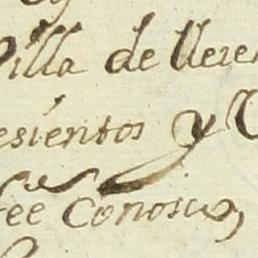 Villa de llere
esientos y
fee Conosco,